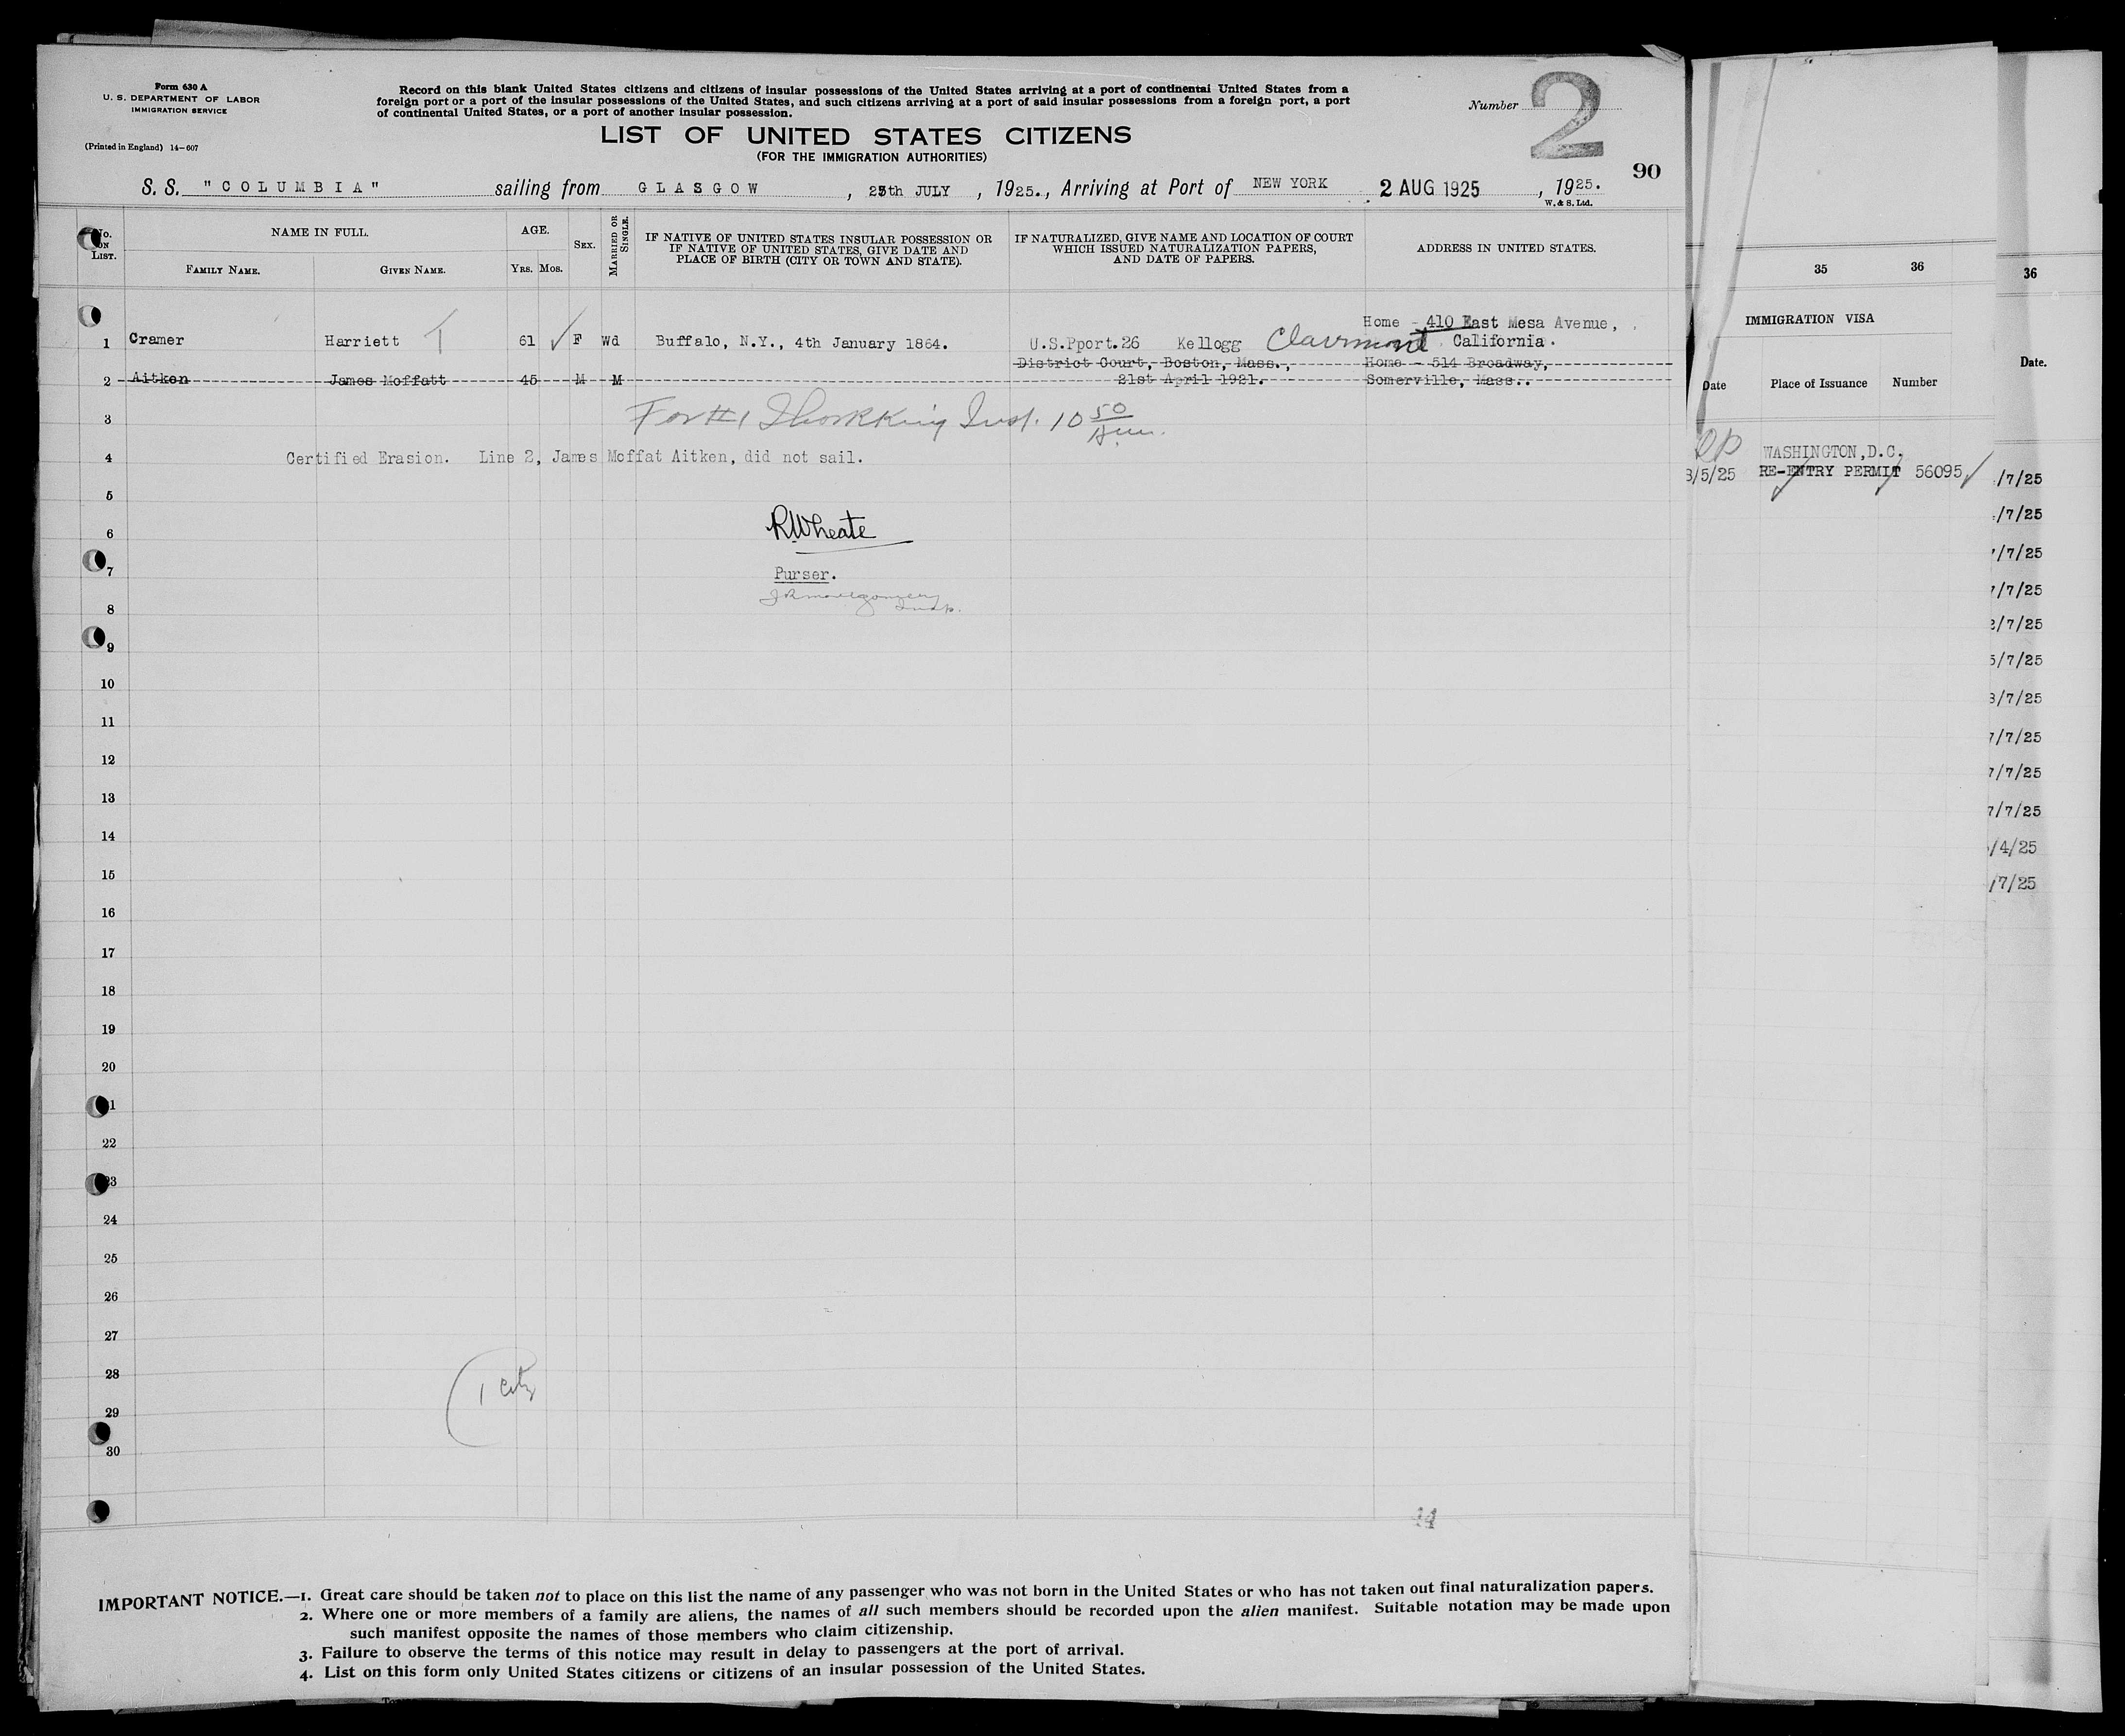 Form 630 A
U. S. DEPARTMENT OF LABOR
IMMIGRATION SERVICE
(Printed in England) 14—607
Record on this blank United States citizens and citizens of insular possessions of the United States arriving at a port of continental United States from a
foreign port or a port of the insular possessions of the United States, and such citizens arriving at a port of said insular possessions from a foreign port, a port
of continental United States, or a port of another insular possession.
Number 2
LIST OF UNITED STATES CITIZENS
(FOR THE IMMIGRATION AUTHORITIES)
90
S. S. "COLUMBIA" sailing from GLASGOW, 25th JULY, 1925., Arriving at Port of NEW YORK 2 AUG 1925, 1925.
W. & S. Ltd.
No. ON LIST.
NAME IN FULL.
FAMILY NAME.
GIVEN NAME.
AGE.
YRS. MOS.
SEX.
MARRIED OR SINGLE.
IF NATIVE OF UNITED STATES INSULAR POSSESSION OR
IF NATIVE OF UNITED STATES, GIVE DATE AND
PLACE OF BIRTH (CITY OR TOWN AND STATE).
IF NATURALIZED, GIVE NAME AND LOCATION OF COURT
WHICH ISSUED NATURALIZATION PAPERS,
AND DATE OF PAPERS.
ADDRESS IN UNITED STATES.
Home - 410 East Mesa Avenue,
1 Cramer Harriett 61 F Wd Buffalo, N.Y., 4th January 1864. U.S.Pport.26 Kellogg Clairmont California.
District Court, Boston, Mass., Home - 514 Broadway,
2 Aitken James Moffatt 45 M M 21st April 1921. Somerville, Mass..
3 For #1 Insp. 10 50
4 Certified Erasion. Line 2, James Moffat Aitken, did not sail.
5
6 RWheate
7 Purser.
8 JRMontgomery
Insp.
9
10
11
12
13
14
15
16
17
18
19
20
21
22
23
24
25
26
27
28
29
30
44
IMPORTANT NOTICE.—1. Great care should be taken not to place on this list the name of any passenger who was not born in the United States or who has not taken out final naturalization papers.
2. Where one or more members of a family are aliens, the names of all such members should be recorded upon the alien manifest. Suitable notation may be made upon
such manifest opposite the names of those members who claim citizenship.
3. Failure to observe the terms of this notice may result in delay to passengers at the port of arrival.
4. List on this form only United States citizens or citizens of an insular possession of the United States.
35 36
IMMIGRATION VISA
Date Place of Issuance Number
WASHINGTON,D.C.
3/5/25 RE-ENTRY PERMIT 56095
36
Date.
/7/25
/7/25
/7/25
7/7/25
2/7/25
5/7/25
3/7/25
7/7/25
7/7/25
7/7/25
/4/25
/7/25